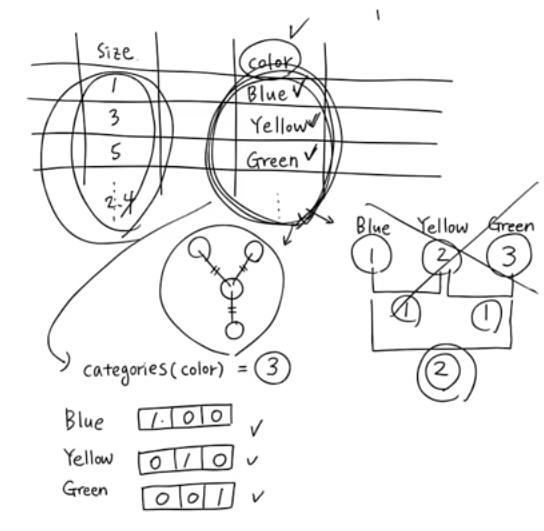 Size color
1 Blue ✓
3 Yellow ✓
5 Green ✓
2.4
Blue Yellow Green
1 2 3
1 1
2
categories(color) = 3
Blue 1 0 0 ✓
Yellow 0 1 0 ✓
Green 0 0 1 ✓